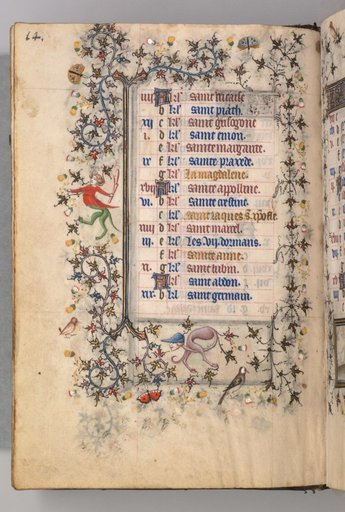 14.
iiij A kl' saint
b kl' saint piath.
xij c kl' saint
i. d kl' saint
e kl' sainte margarite.
ix f kl' sainte praxede.
g kl' La magdalene.
xvij A kl' saint appolline.
vi. b kl' sainte crestine.
c kl' saint iaques & xpofle
iiij d kl' saint marcel.
iij. e kl' Les .vij. dormans.
f kl' sainte anne.
xi. g kl' saint
A kl' saint abdon.
xix. b kl' saint germain.